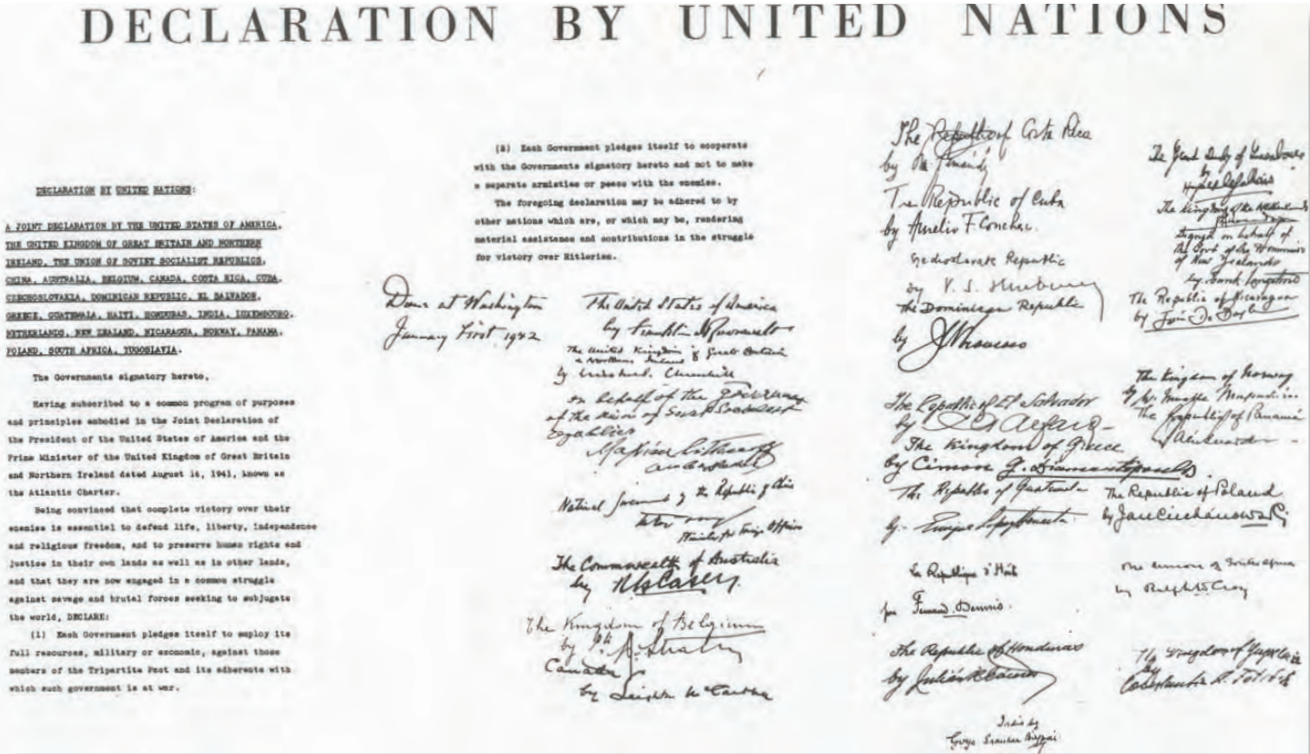 DECLARATION BY UNITED NATIONS
DECLARATION BY UNITED NATIONS:
A JOINT DECLARATION BY THE UNITED STATES OF AMERICA,
THE UNITED KINGDOM OF GREAT BRITAIN AND NORTHERN
IRELAND, THE UNION OF SOVIET SOCIALIST REPUBLICS,
CHINA, AUSTRALIA, BELGIUM, CANADA, COSTA RICA, CUBA,
CZECHOSLOVAKIA, DOMINICAN REPUBLIC, EL SALVADOR,
GREECE, GUATEMALA, HAITI, HONDURAS, INDIA, LUXEMBOURG,
NETHERLANDS, NEW ZEALAND, NICARAGUA, NORWAY, PANAMA,
POLAND, SOUTH AFRICA, YUGOSLAVIA.
The Governments signatory hereto,
Having subscribed to a common program of purposes
and principles embodied in the Joint Declaration of
the President of the United States of America and the
Prime Minister of the United Kingdom of Great Britain
and Northern Ireland dated August 14, 1941, known as
the Atlantic Charter.
Being convinced that complete victory over their
enemies is essential to defend life, liberty, independence
and religious freedom, and to preserve human rights and
justice in their own lands as well as in other lands,
and that they are now engaged in a common struggle
against savage and brutal forces seeking to subjugate
the world, DECLARE:
(1) Each Government pledges itself to employ its
full resources, military or economic, against those
members of the Tripartite Pact and its adherents with
which such government is at war.
(2) Each Government pledges itself to cooperate
with the Governments signatory hereto and not to make
a separate armistice or peace with the enemies.
The foregoing declaration may be adhered to by
other nations which are, or which may be, rendering
material assistance and contributions in the struggle
for victory over Hitlerism.
Done at Washington
January First 1942
The United States of America
by Franklin D Roosevelt
The United Kingdom of Great Britain
& Northern Ireland
by Winston S. Churchill
on behalf of the Government
of the Union of Soviet Socialist
Republics
Maxim Litvinoff
Ambassador
National Government of the Republic of China
Minister for Foreign Affairs
The Commonwealth of Australia
by R G Casey
The Kingdom of Belgium
by
Canada
by Leighton McCarthy
The Republic of Costa Rica
by
The Republic of Cuba
by Aurelio F. Concheso.
Republic
by V. S. Hurban
The Dominican Republic
by
The Republic of El Salvador
by C A Alfaro
The Kingdom of Greece
by Cimon G. Diamantopoulos.
The Republic of Guatemala
by
La Republique d'Haiti
par Fernand Dennis.
The Republic of Honduras
by Julián R Caceres
India by
Girja Shankar Bajpai
The Grand Duchy of Luxembourg
by
The Kingdom of the Netherlands
Signed on behalf of
the Govt of the Dominion
of New Zealand
by Frank Langstone
The Republic of Nicaragua
by
The Kingdom of Norway
by W. Munthe Morgenstierne
The Republic of Panamá
by
The Republic of Poland
by Jan Ciechanowski
The Union of South Africa
by Ralph W Close
The Kingdom of Yugoslavia
by
Constantin A. Fotitch